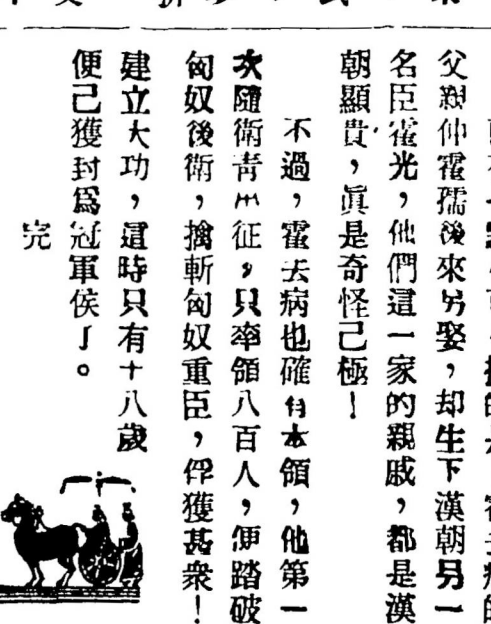 父親仲霍孺後來另娶，却生下漢朝另一
名臣霍光，他們這一家的親戚，都是漢
朝顯貴，眞是奇怪己極！
不過，霍去病也確有本領，他第一
次隨衛青出征，只率領八百人，便踏破
匈奴後衛，擒斬匈奴重臣，俘獲甚衆！
建立大功，這時只有十八歲
便己獲封爲冠軍侯了。
完